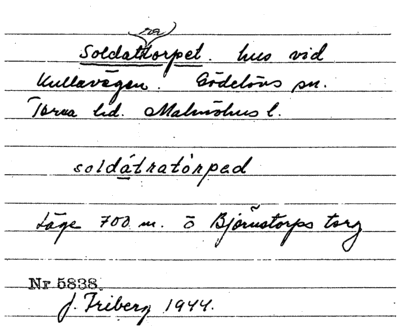 ra
Soldattorpet. hus vid
Kullavägen. Gödelövs sn.
Torna hd. Malmöhus l.
soldátratòrpad
Läge 700 m. ö Björnstorps torg
Nr 5838.
J. Friberg 1944.